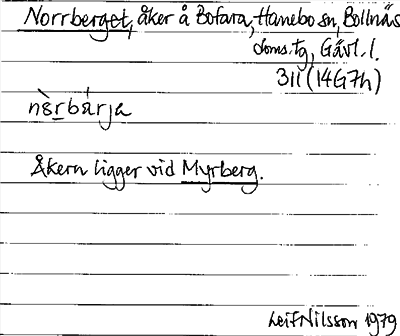 Norrberget, åker å Bofara, Hanebo sn, Bollnäs
doms.tg, Gävl. l.
311 (14G7h)
nòrbárja
Åkern ligger vid Myrberg.
Leif Nilsson 1979